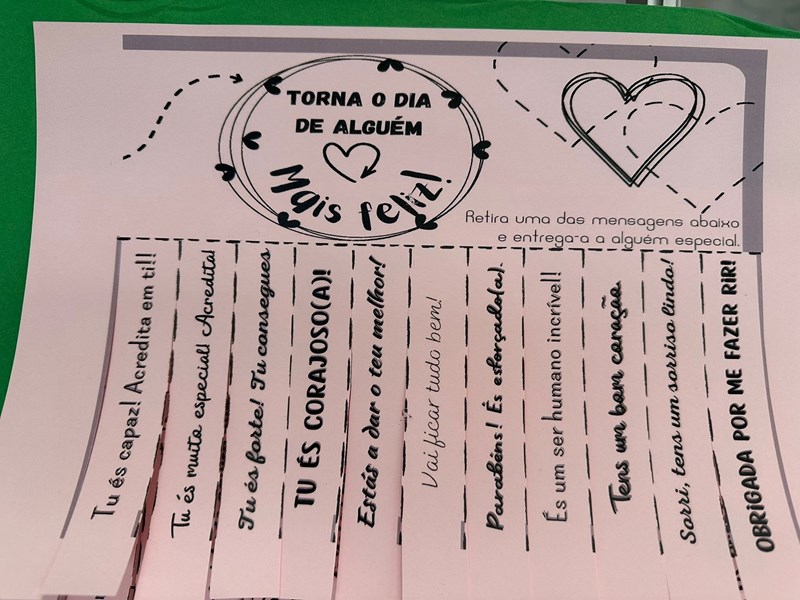 TORNA O DIA
DE ALGUÉM
Mais feliz!
Retira uma das mensagens abaixo
e entrega-a a alguém especial.
Tu és capaz! Acredita em ti!!
Tu és muito especial! Acredita!
Tu és forte! Tu consegues
TU ÉS CORAJOSO(A)!
Estás a dar o teu melhor!
Vai ficar tudo bem!
Parabéns! És esforçado(a).
És um ser humano incrível!
Tens um bom coração
Sorri, tens um sorriso lindo!
OBRIGADA POR ME FAZER RIR!